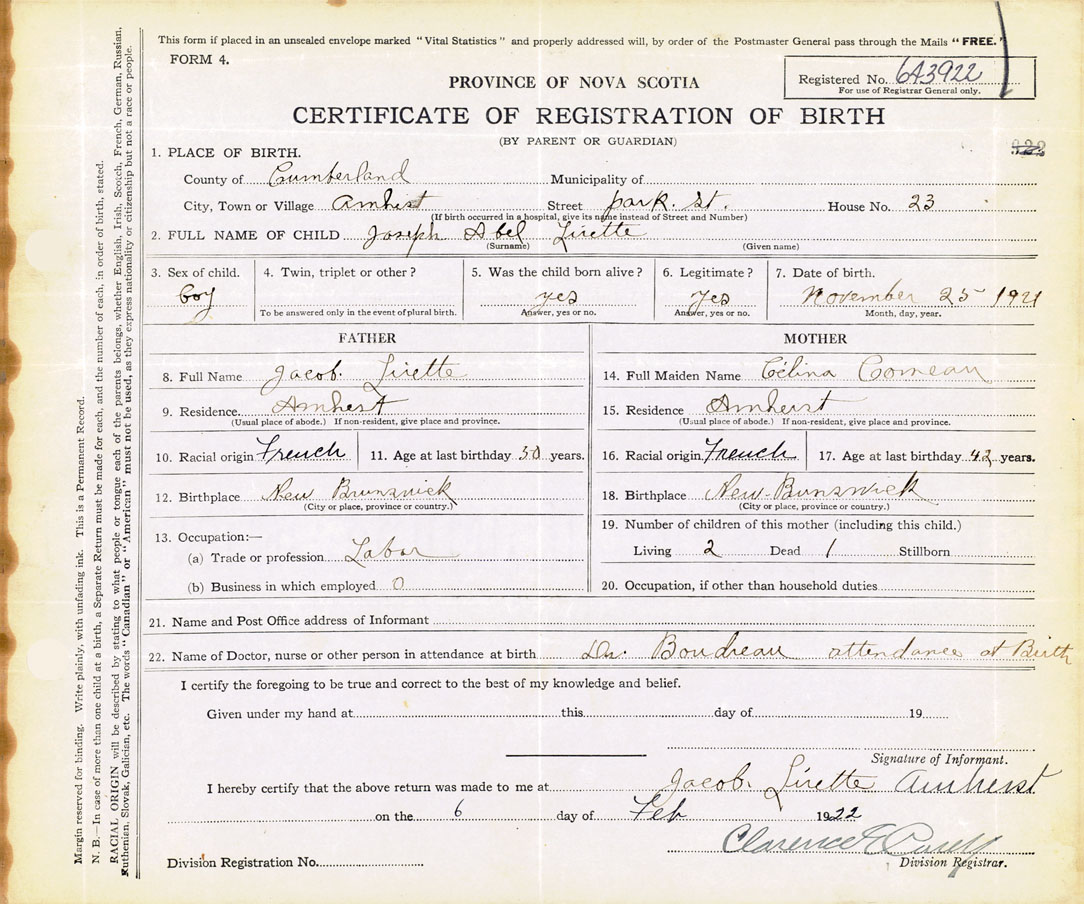 This form if placed in an unsealed envelope marked "Vital Statistics" and properly addressed will, by order of the Postmaster General pass through the Mails "FREE."
FORM 4.
Registered No. 643922
For use of Registrar General only.
PROVINCE OF NOVA SCOTIA
CERTIFICATE OF REGISTRATION OF BIRTH
(BY PARENT OR GUARDIAN)
1. PLACE OF BIRTH.
County of Cumberland Municipality of
City, Town or Village Amhest Street park. st. House No. 23
(If birth occurred in a hospital, give its name instead of Street and Number)
2. FULL NAME OF CHILD Joseph Abel Lirette
(Surname) (Given name)
3. Sex of child. 4. Twin, triplet or other? 5. Was the child born alive? 6. Legitimate? 7. Date of birth.
boy yes yes November 25 1921
To be answered only in the event of plural birth. Answer, yes or no. Answer, yes or no. Month, day, year.
FATHER
8. Full Name Jacob. Lirette
9. Residence. Amherst
(Usual place of abode.) If non-resident, give place and province.
10. Racial origin French 11. Age at last birthday 50 years.
12. Birthplace New Brunswick
(City or place, province or country.)
13. Occupation:—
(a) Trade or profession Labor
(b) Business in which employed 0
MOTHER
14. Full Maiden Name Célina Comeau
15. Residence Amherst
(Usual place of abode.) If non-resident, give place and province.
16. Racial origin French 17. Age at last birthday 42 years.
18. Birthplace New-Bunswick
(City or place, province or country.)
19. Number of children of this mother (including this child.)
Living 2 Dead 1 Stillborn
20. Occupation, if other than household duties
21. Name and Post Office address of Informant
22. Name of Doctor, nurse or other person in attendance at birth Dr. Boudreau attendance at Birth
I certify the foregoing to be true and correct to the best of my knowledge and belief.
Given under my hand at this day of 19
Signature of Informant.
I hereby certify that the above return was made to me at Jacob. Lirette Amherst
on the 6 day of Feb 1922
Clarence E
Division Registration No. Division Registrar.
Margin reserved for binding. Write plainly, with unfading ink. This is a Permanent Record.
N. B.—In case of more than one child at a birth, a Separate Return must be made for each, and the number of each, in order of birth, stated.
RACIAL ORIGIN will be described by stating to what people or tongue each of the parents belongs, whether English, Irish, Scotch, French, German, Russian,
Ruthenian, Slovak, Galician, etc. The words "Canadian" or "American" must not be used, as they express nationality or citizenship but not a race or people.